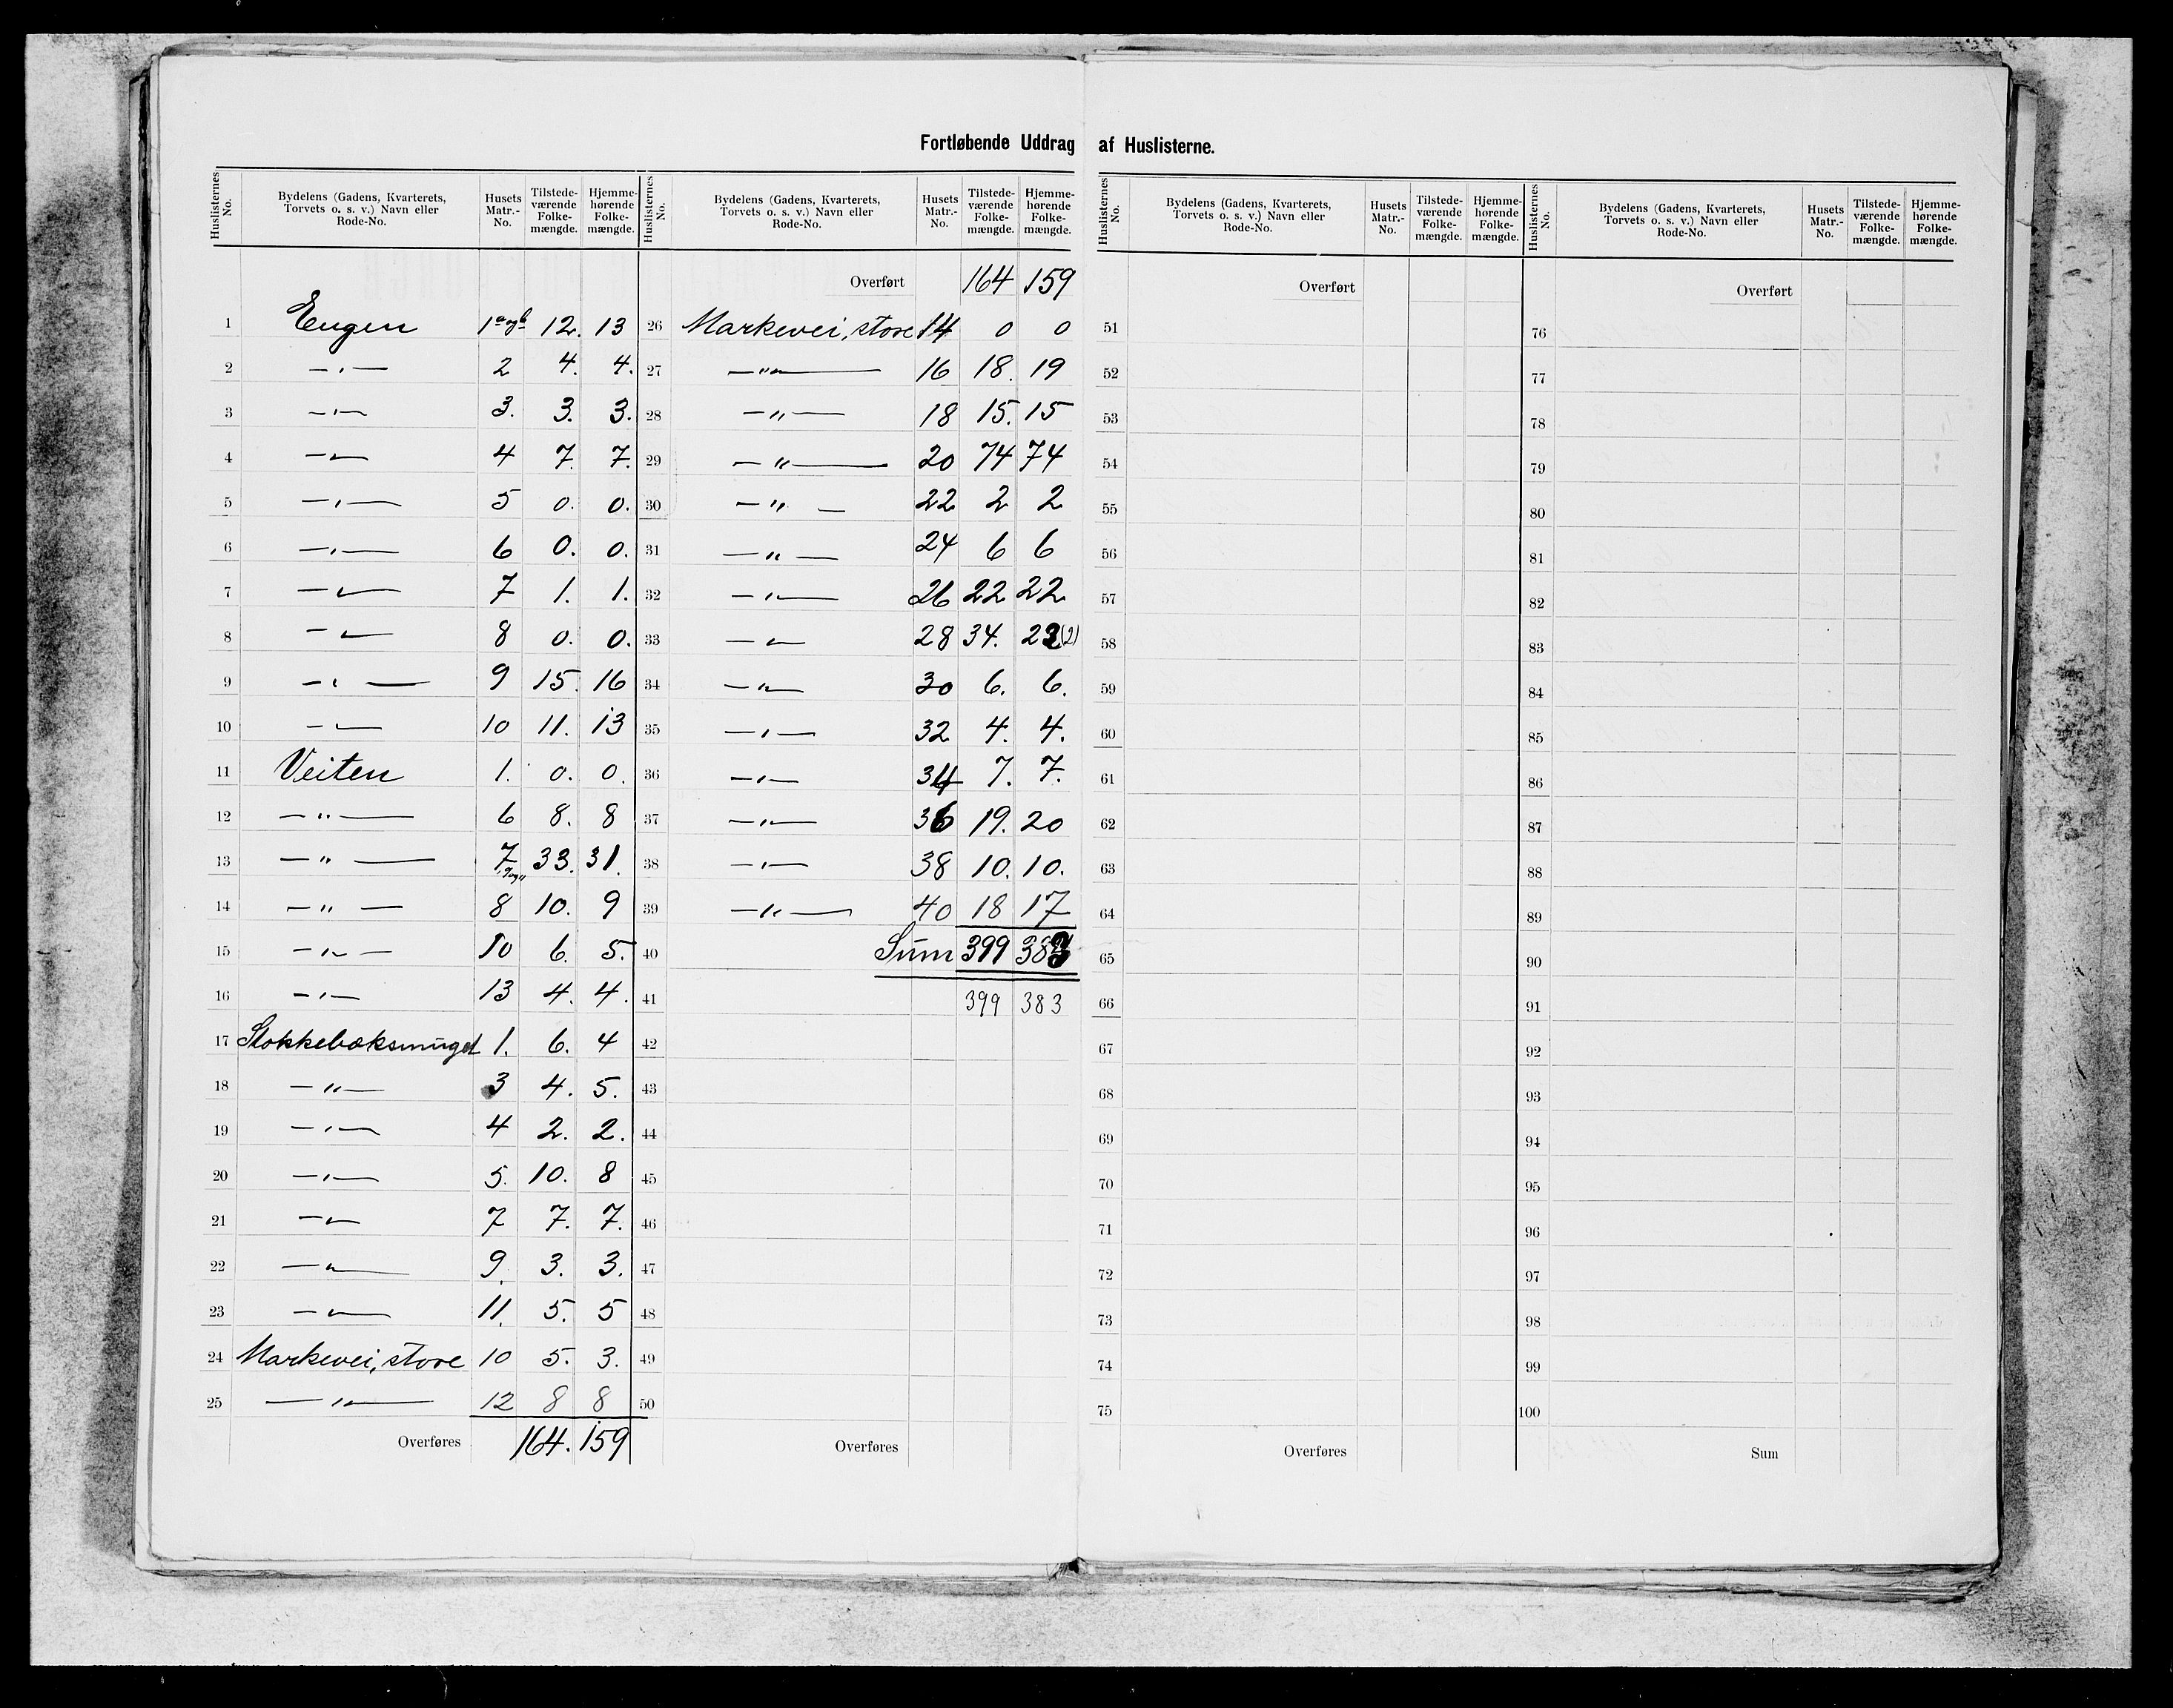 Fortløbende Uddrag af Huslisterne.
Huslisternes No. Bydelens (Gadens, Kvarterets, Torvets o. s. v.) Navn eller Rode-No. Husets Matr.-No. Tilstedeværende Folkemængde. Hjemmehørende Folkemængde.
1 Engen 1a og b 12. 13
2 —„— 2 4. 4.
3 —„— 3. 3. 3.
4 —„— 4 7. 7.
5 —„— 5 0. 0.
6 —„— 6 0. 0.
7 —„— 7 1. 1.
8 —„— 8 0. 0.
9 —„— 9 15. 16
10 —„— 10 11. 13
11 Veiten 1. 0. 0.
12 —„— 6 8. 8
13 —„— 7, 9 og 11 33. 31.
14 —„— 8 10. 9
15 —„— 10 6. 5.
16 —„— 13 4. 4.
17 Stokkebæksmuget 1. 6. 4
18 —„— 3 4. 5.
19 —„— 4 2. 2.
20 —„— 5. 10. 8
21 —„— 7 7. 7.
22 —„— 9. 3. 3.
23 —„— 11. 5. 5
24 Markevei, store 10 5. 3.
25 —„— 12 8 8
Overføres 164. 159
Huslisternes No. Bydelens (Gadens, Kvarterets, Torvets o. s. v.) Navn eller Rode-No. Husets Matr.-No. Tilstedeværende Folkemængde. Hjemmehørende Folkemængde.
Overført 164 159
26 Markevei, store 14 0 0
27 —„— 16 18. 19
28 —„— 18 15. 15
29 —„— 20 74 74
30 —„— 22 2 2
31 —„— 24 6 6
32 —„— 26 22 22
33 —„— 28 34. 22 (2)
34 —„— 30 6. 6.
35 —„— 32 4. 4.
36 —„— 34 7. 7.
37 —„— 36 19. 20
38 —„— 38 10. 10.
39 —„— 40 18 17
40 Sum 399 383
41 399 383
42
43
44
45
46
47
48
49
50
Overføres
Huslisternes No. Bydelens (Gadens, Kvarterets, Torvets o. s. v.) Navn eller Rode-No. Husets Matr.-No. Tilstedeværende Folkemængde. Hjemmehørende Folkemængde.
Overført
51
52
53
54
55
56
57
58
59
60
61
62
63
64
65
66
67
68
69
70
71
72
73
74
75
Overføres
Huslisternes No. Bydelens (Gadens, Kvarterets, Torvets o. s. v.) Navn eller Rode-No. Husets Matr.-No. Tilstedeværende Folkemængde. Hjemmehørende Folkemængde.
Overført
76
77
78
79
80
81
82
83
84
85
86
87
88
89
90
91
92
93
94
95
96
97
98
99
100
Sum